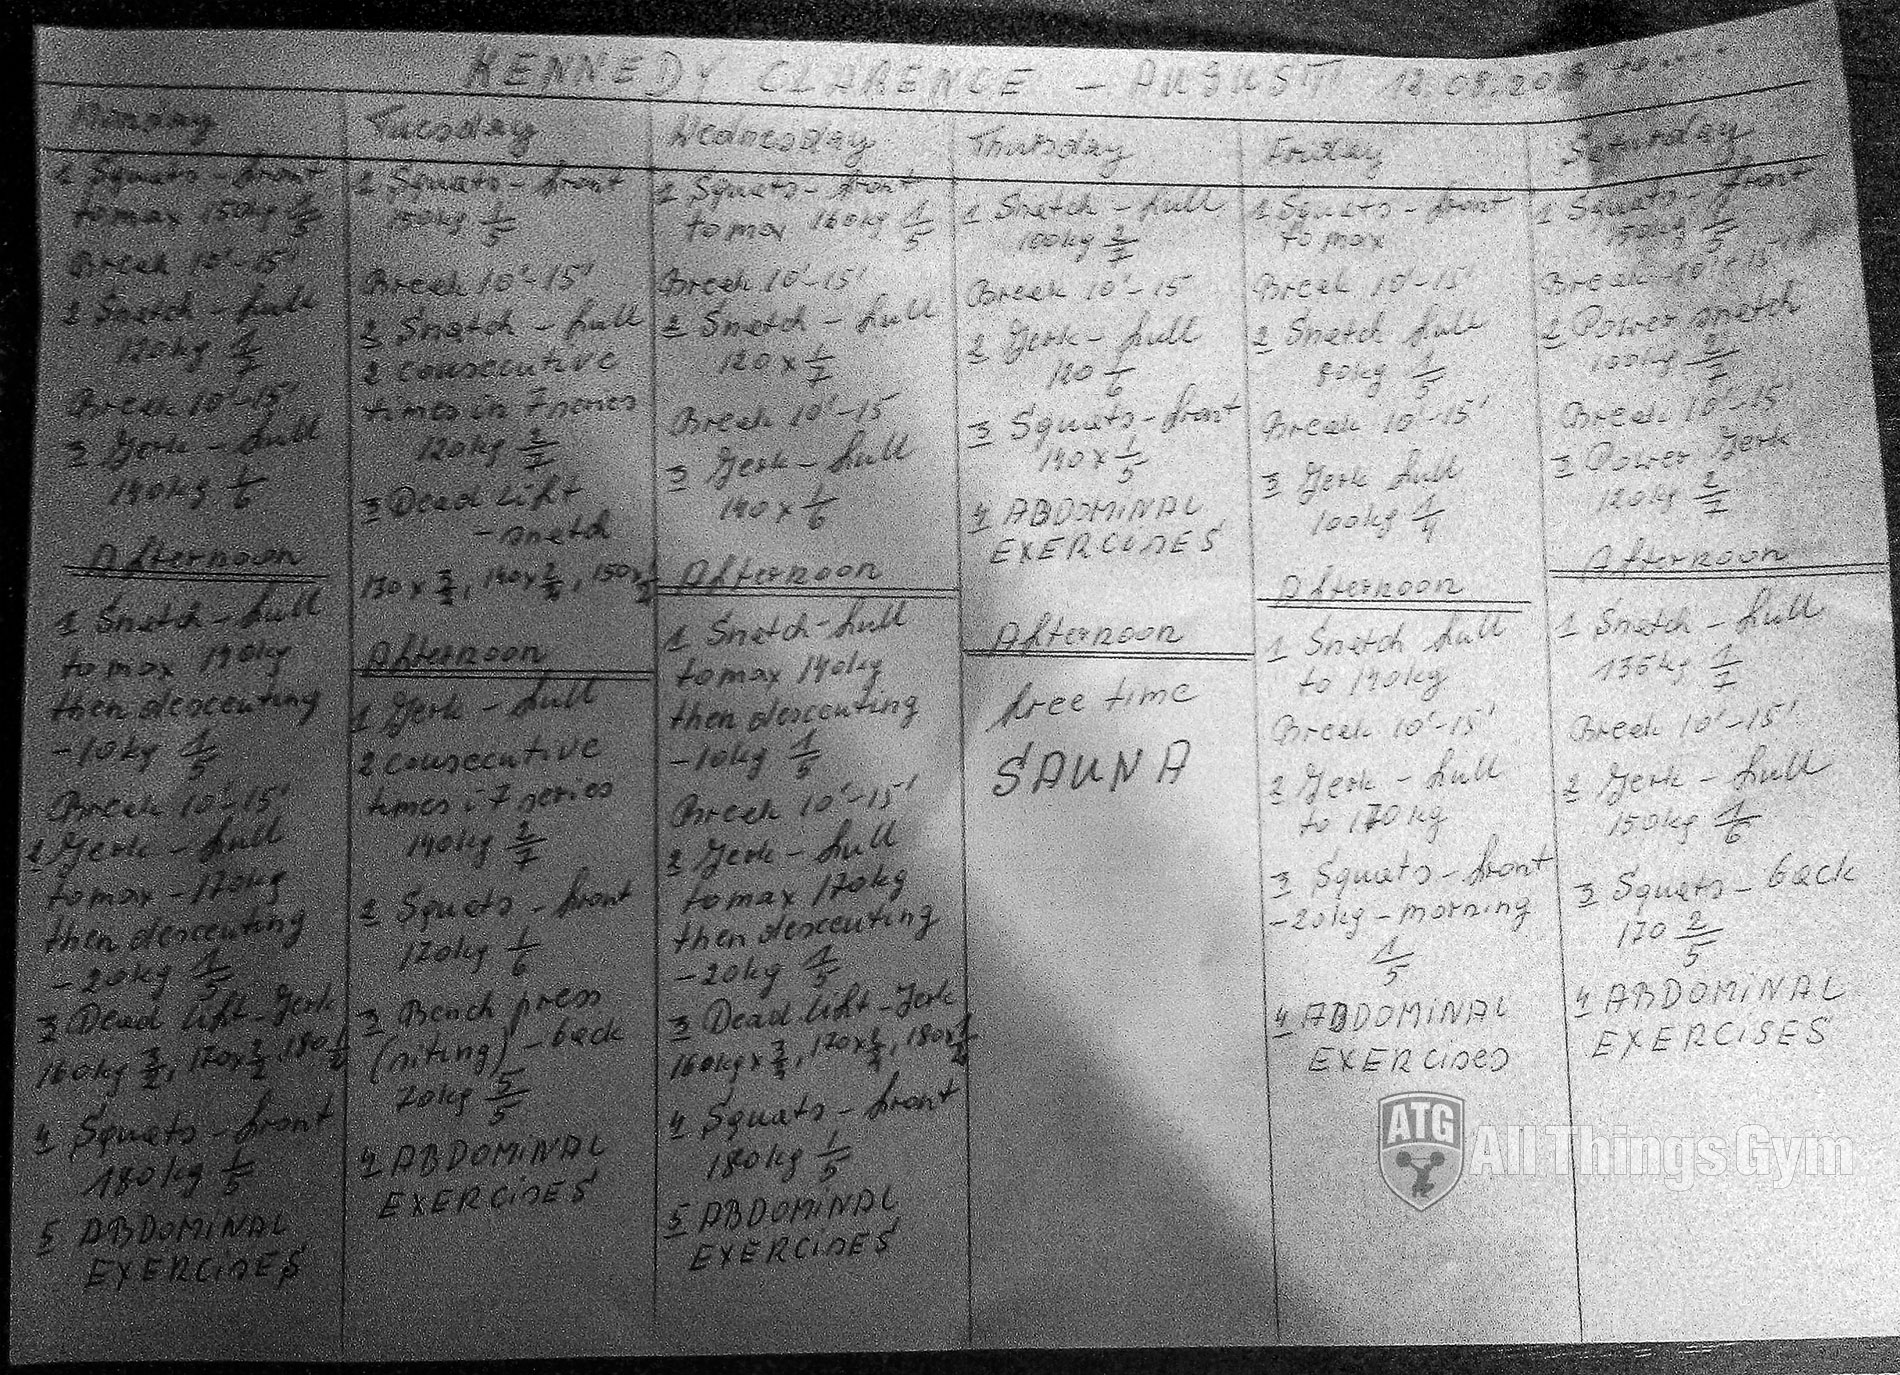 KENNEDY CLARENCE - AUGUST
Monday
1 Squats - front
to max 150kg 1/5
Break 10'-15'
2 Snatch - full
120kg 1/7
Break 10'-15'
3 Jerk - full
140kg 1/6
Afternoon
1 Snatch - full
to max 140kg
then descenting
-10kg 1/5
Break 10'-15'
2 Jerk - full
to max - 170kg
then descenting
-20kg 1/5
3 Dead lift - Jerk
160kg 3/2, 170x2/2, 180 1/2
4 Squats - front
180kg 1/5
5 ABDOMINAL
EXERCISES
Tuesday
1 Squats - front
150kg 1/5
Break 10'-15'
2 Snatch - full
2 consecutive
times in 7 series
120kg 2/7
3 Dead Lift
- snatch
130x3/2, 140x2/2, 150x1/2
Afternoon
1 Jerk - full
2 consecutive
times i 7 series
140kg 2/7
2 Squats - front
170kg 1/6
3 Bench press
(siting) - back
70kg 5/5
4 ABDOMINAL
EXERCISES
Wednesday
1 Squats - front
to max 160kg 1/5
Break 10'-15'
2 Snatch - full
120 x 1/7
Break 10'-15
3 Jerk - full
140 x 1/6
Afternoon
1 Snatch - full
to max 140kg
then descenting
-10kg 1/5
Break 10'-15'
2 Jerk - full
to max 170kg
then descenting
-20kg 1/5
3 Dead lift - Jerk
4 Squats - front
180kg 1/5
5 ABDOMINAL
EXERCISES
Thursday
1 Snatch - full
100kg 2/7
Break 10'-15
2 Jerk - full
120 1/6
3 Squats - front
140 x 1/5
4 ABDOMINAL
EXERCISES
Afternoon
free time
SAUNA
Friday
1 Squats - front
to max
Break 10'-15'
2 Snatch full
80kg 1/5
Break 10'-15'
3 Jerk full
100kg 1/4
Afternoon
1 Snatch full
to 140kg
Break 10'-15'
2 Jerk - full
to 170kg
3 Squats - front
-20kg - morning
1/5
4 ABDOMINAL
EXERCISES
Saturday
1 Squats - front
150kg 1/5
Break 10'-15'
2 Power snatch
100kg 2/7
Break 10'-15'
3 Power Jerk
120kg 2/7
Afternoon
1 Snatch - full
135kg 1/7
Break 10'-15'
2 Jerk - full
150kg 1/6
3 Squats - back
170 2/5
4 ABDOMINAL
EXERCISES
ATG All Things Gym